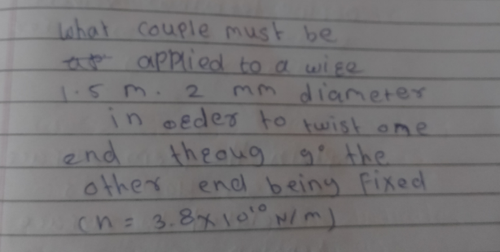 what couple must be
applied to a wire
1.5 m. 2 mm diameter
in oeder to twist one
end theoug 90 the
other end being fixed
(n = 3.8×10¹⁰ N/m)